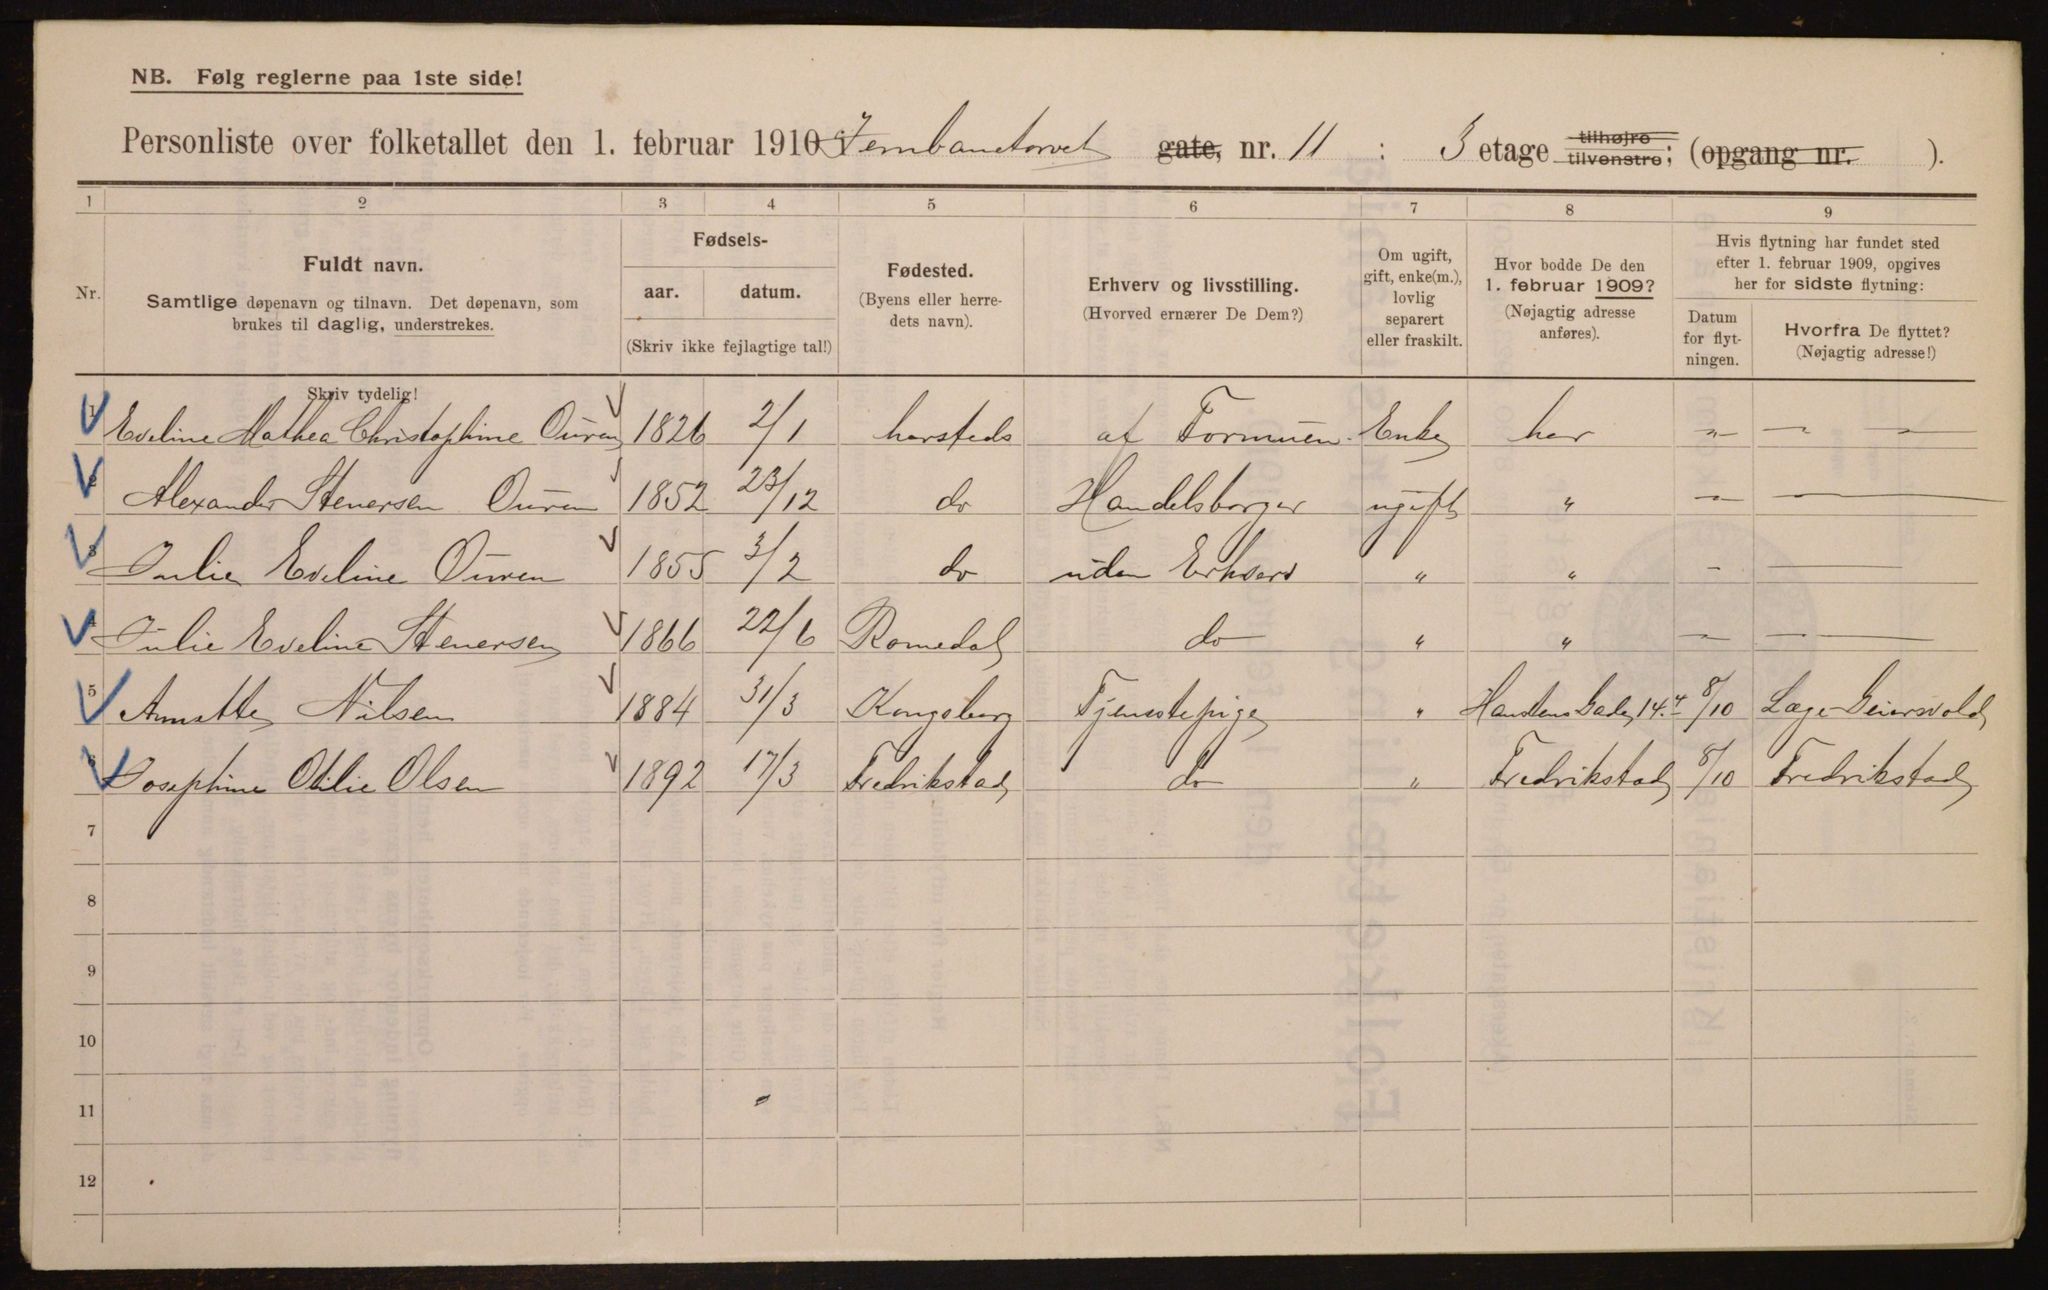 NB. Følg reglerne paa 1ste side!
Personliste over folketallet den 1. februar 1910 Jernbanetorvet gate, nr. 11 : 3 etage tilhøjre tilvenstre; (opgang nr. ).
1 2 3 4 5 6 7 8 9
Nr.
Fuldt navn.
Samtlige døpenavn og tilnavn. Det døpenavn, som
brukes til daglig, understrekes.
Fødsels-
aar. datum.
(Skriv ikke fejlagtige tal!)
Fødested.
(Byens eller herre-
dets navn).
Erhverv og livsstilling.
(Hvorved ernærer De Dem?)
Om ugift,
gift, enke(m.),
lovlig
separert
eller fraskilt.
Hvor bodde De den
1. februar 1909?
(Nøjagtig adresse
anføres).
Hvis flytning har fundet sted
efter 1. februar 1909, opgives
her for sidste flytning:
Datum
for flyt-
ningen.
Hvorfra De flyttet?
(Nøjagtig adresse!)
Skriv tydelig!
1 Eveline Mathea Christophine Ouren 1826 2/1 hersteds af Formuen Enke her " — "
2 Alexander Stenersen Ouren 1852 23/12 do Handelsborger ugift " " —
3 Julie Eveline Ouren 1855 3/2 do uden Erhverv " " - —
4 Julie Eveline Stenersen 1866 22/6 Romedal do " " — —
5 Annette Nilsen 1884 31/3 Kongsberg Tjenestepige " Hanstens Gade 14.4 8/10 Læge
6 Josephine Otilie Olsen 1892 17/3 Fredrikstad do " Fredrikstad 8/10 Fredrikstad
7
8
9
10
11
12